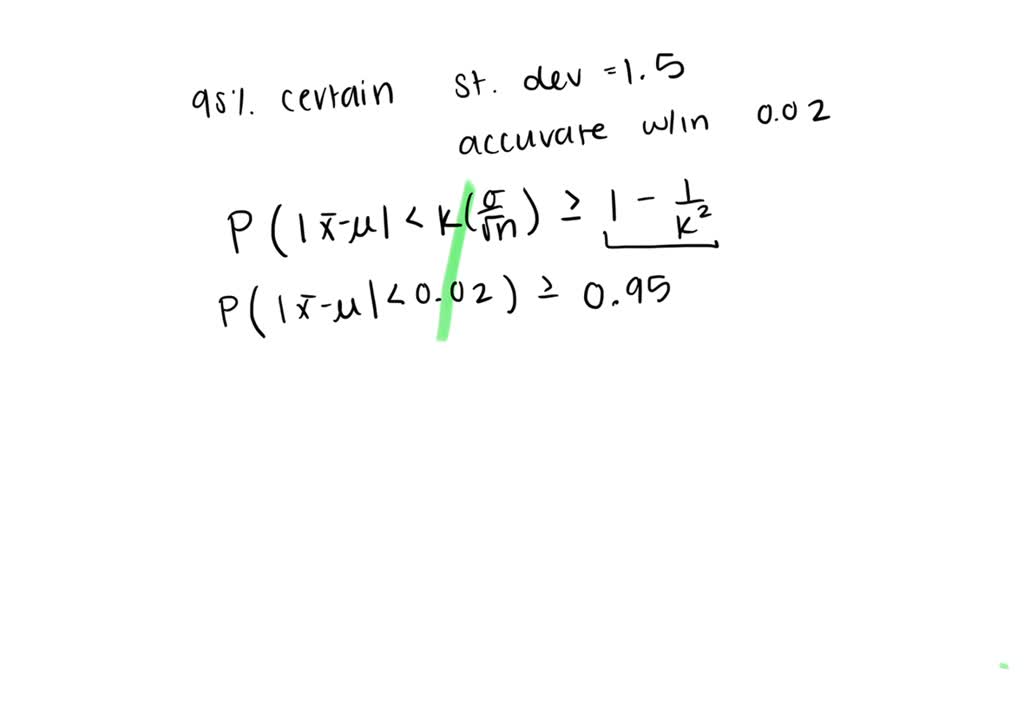 95%. certain st. dev = 1.5
accurate w/in 0.02
P(|x̄-μ| < k(σ/√n) ≥ 1 - 1/k²
P(|x̄-μ| < 0.02) ≥ 0.95